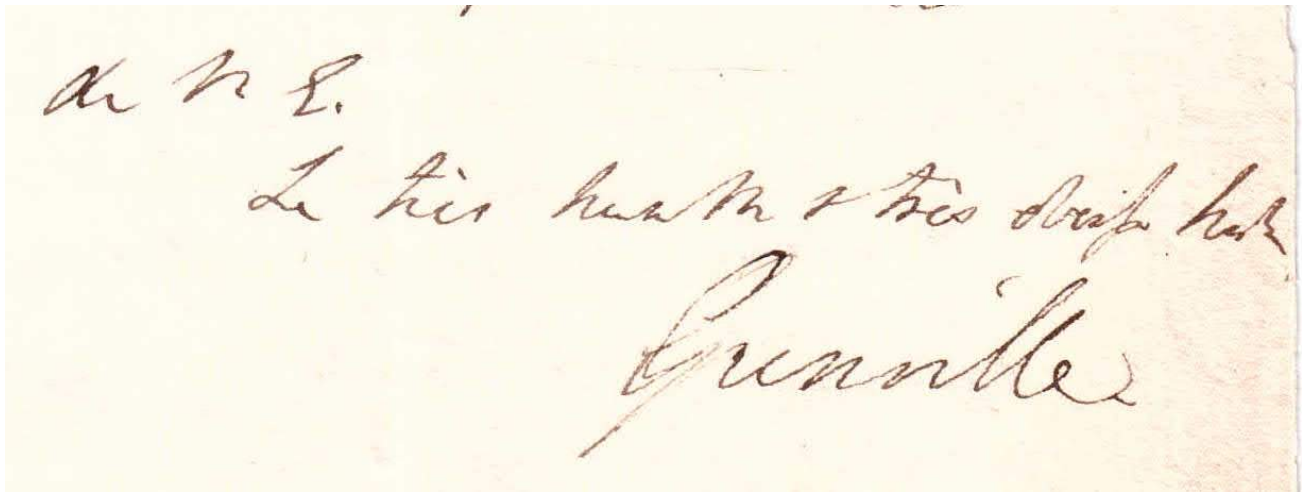 de V E.
Le très humble & très obeisst
Grenville